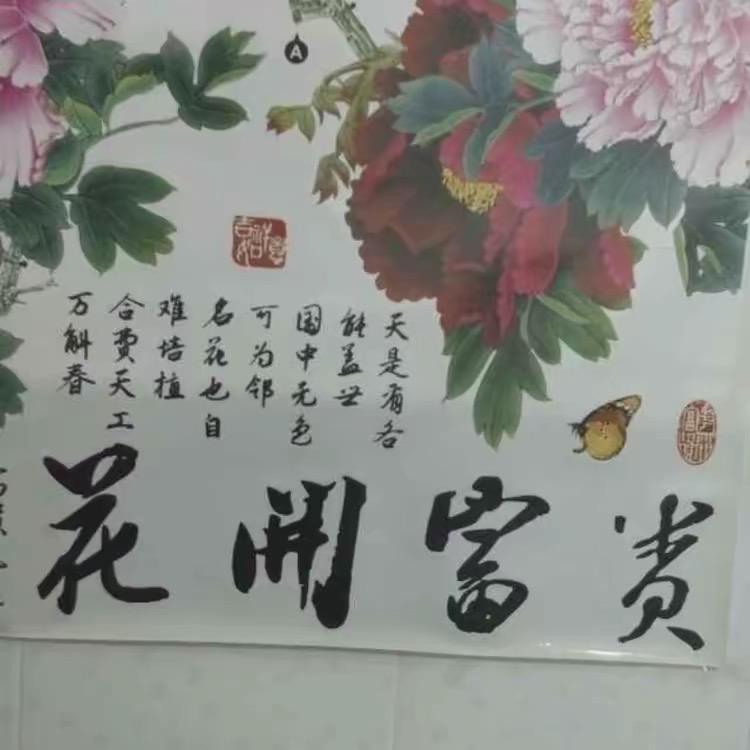 A
天是有各
能盖世
国中无色
可为邻
名花也自
难培植
合费天工
万斛春
花開富贵